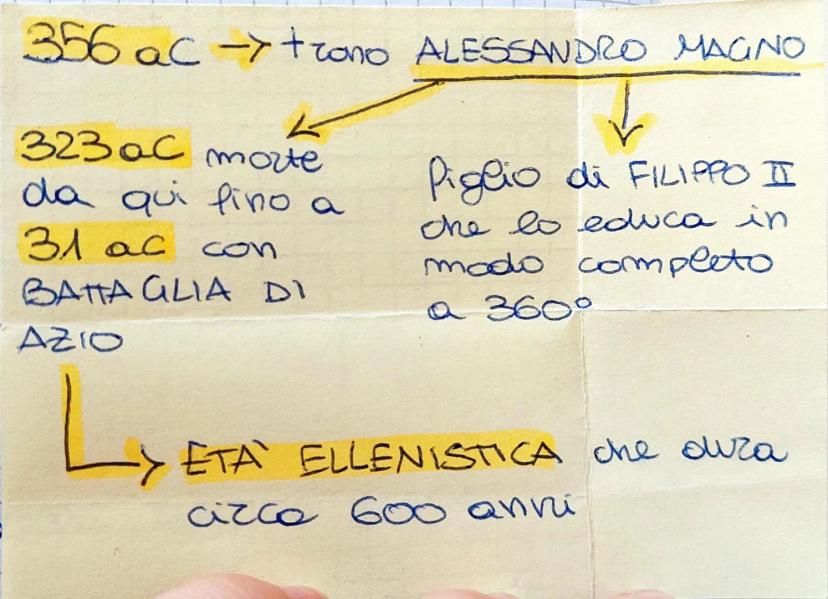 356 aC → trono ALESSANDRO MAGNO
323 aC morte
da qui fino a
31 aC con
BATTAGLIA DI
AZIO
figlio di FILIPPO II
che lo educa in
modo completo
a 360°
ETÀ ELLENISTICA che dura
circa 600 anni